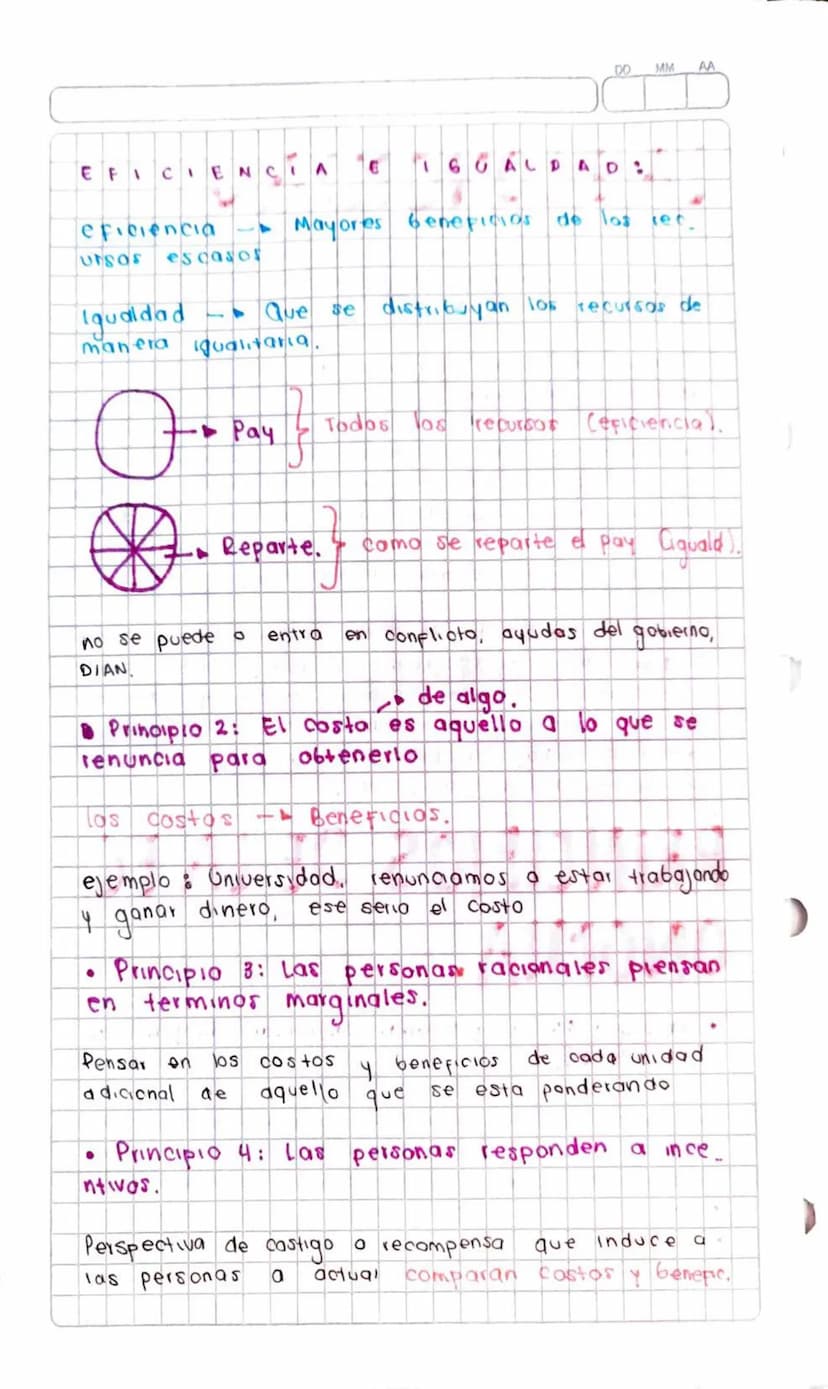 DD MM AA
EFICIENCIA E IGUALDAD:
eficiencia → Mayores beneficios de los rec-
ursos escasos
Igualdad → Que se distribuyan los recursos de
manera igualitaria.
→ Pay } Todos los recursos (eficiencia).
→ Reparte. } como se reparte el pay (iguald).
no se puede o entra en conflicto, ayudas del gobierno,
DIAN.
→ de algo.
Principio 2: El costo es aquello a lo que se
renuncia para obtenerlo
los costos → Beneficios.
ejemplo: Universidad, renunciamos a estar trabajando
y ganar dinero, ese serio el costo
• Principio 3: Las personas racionales piensan
en terminos marginales.
Pensar en los costos y beneficios de cada unidad
adicional de aquello que se esta ponderando
• Principio 4: Las personas responden a ince-
ntivos.
Perspectiva de castigo o recompensa que induce a
las personas a actuar comparan costos y benefic.